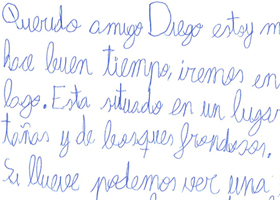 Querido amigo Diego estoy m
hace buen tiempo, iremos en
lago. Esta situado en un lugar
tañas y de bosques frondosos.
Si llueve podemos ver una